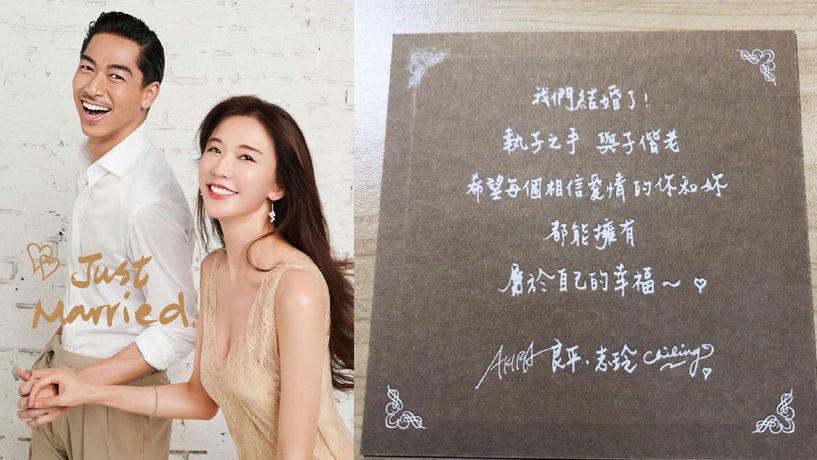 Just
Married
我們結婚了!
執子之手 與子偕老
希望每個相信愛情的你和妳
都能擁有
屬於自己的幸福~♡
AKIRA 良平.志玲 Chiling♡